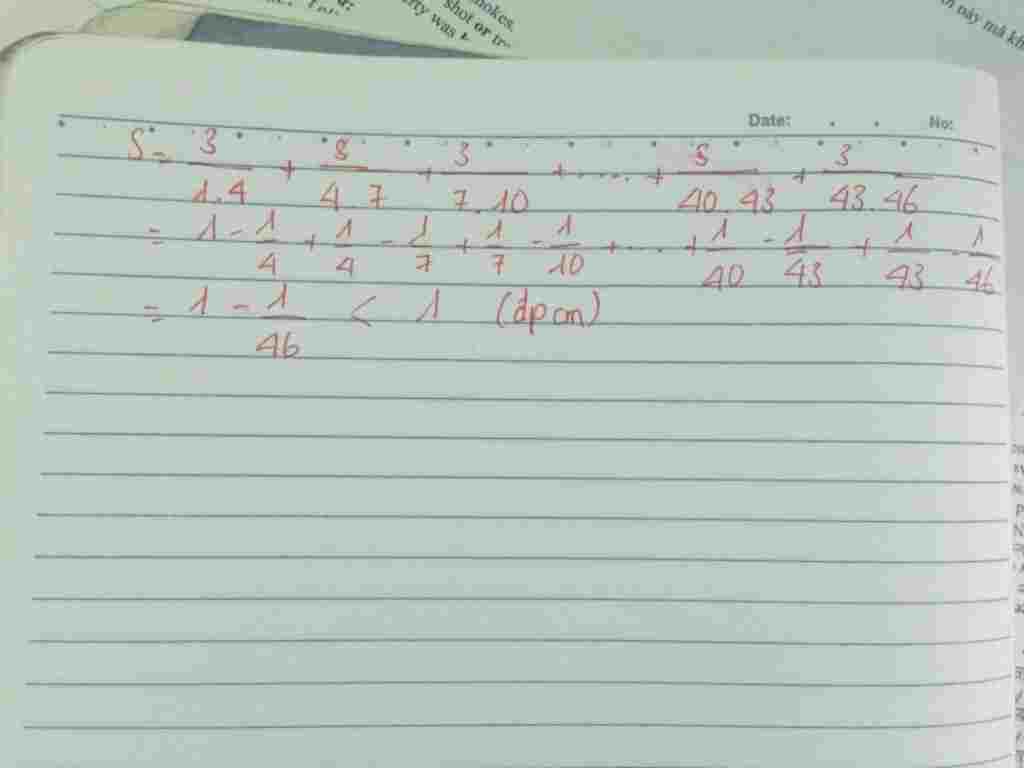 hokes.
erty was
shot or tr-
Date: . . No:
S = 3/1.4 + 3/4.7 + 3/7.10 + .... + 3/40.43 + 3/43.46
= 1 - 1/4 + 1/4 - 1/7 + 1/7 - 1/10 + ... + 1/40 - 1/43 + 1/43 - 1/46
= 1 - 1/46 < 1 (dpcm)